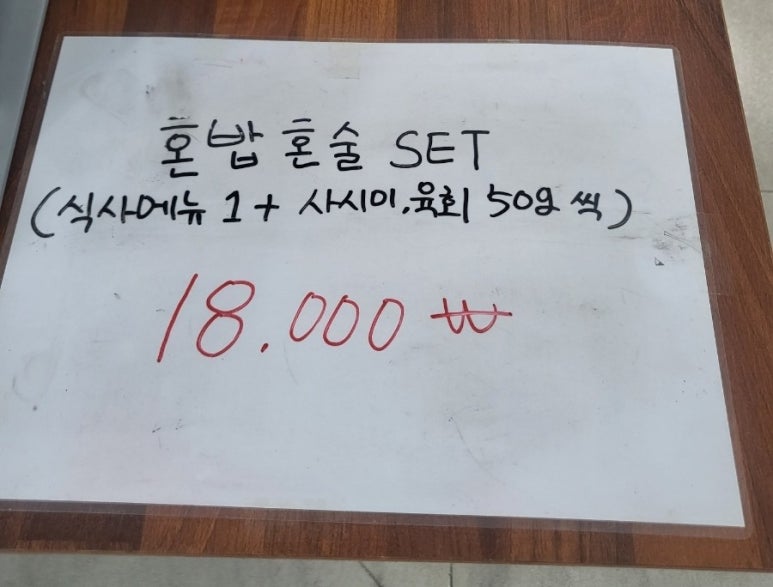 혼밥 혼술 SET
(식사메뉴 1 + 사시미,육회 50g 씩)
18.000 ₩